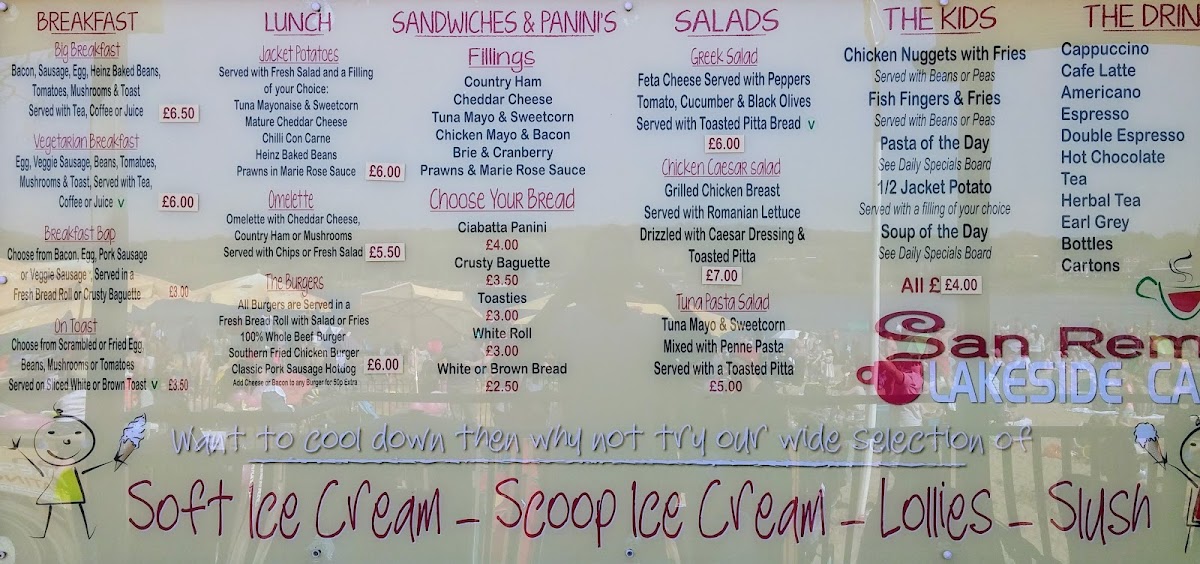 BREAKFAST
Big Breakfast
Bacon, Sausage, Egg, Heinz Baked Beans,
Tomatoes, Mushrooms & Toast
Served with Tea, Coffee or Juice £6.50
Vegetarian Breakfast
Egg, Veggie Sausage, Beans, Tomatoes,
Mushrooms & Toast, Served with Tea,
Coffee or Juice v £6.00
Breakfast Bap
Choose from Bacon, Egg, Pork Sausage
or Veggie Sausage*, Served in a
Fresh Bread Roll or Crusty Baguette £3.00
On Toast
Choose from Scrambled or Fried Egg,
Beans, Mushrooms or Tomatoes
Served on Sliced White or Brown Toast v £3.50
LUNCH
Jacket Potatoes
Served with Fresh Salad and a Filling
of your Choice:
Tuna Mayonaise & Sweetcorn
Mature Cheddar Cheese
Chilli Con Carne
Heinz Baked Beans
Prawns in Marie Rose Sauce £6.00
Omelette
Omelette with Cheddar Cheese,
Country Ham or Mushrooms
Served with Chips or Fresh Salad £5.50
The Burgers
All Burgers are Served in a
Fresh Bread Roll with Salad or Fries
100% Whole Beef Burger
Southern Fried Chicken Burger
Classic Pork Sausage Hotdog £6.00
Add Cheese or Bacon to any Burger for 50p Extra
SANDWICHES & PANINI'S
Fillings
Country Ham
Cheddar Cheese
Tuna Mayo & Sweetcorn
Chicken Mayo & Bacon
Brie & Cranberry
Prawns & Marie Rose Sauce
Choose Your Bread
Ciabatta Panini
£4.00
Crusty Baguette
£3.50
Toasties
£3.00
White Roll
£3.00
White or Brown Bread
£2.50
SALADS
Greek Salad
Feta Cheese Served with Peppers
Tomato, Cucumber & Black Olives
Served with Toasted Pitta Bread v
£6.00
Chicken Caesar salad
Grilled Chicken Breast
Served with Romanian Lettuce
Drizzled with Caesar Dressing &
Toasted Pitta
£7.00
Tuna Pasta Salad
Tuna Mayo & Sweetcorn
Mixed with Penne Pasta
Served with a Toasted Pitta
£5.00
THE KIDS
Chicken Nuggets with Fries
Served with Beans or Peas
Fish Fingers & Fries
Served with Beans or Peas
Pasta of the Day
See Daily Specials Board
1/2 Jacket Potato
Served with a filling of your choice
Soup of the Day
See Daily Specials Board
All £ £4.00
THE DRIN
Cappuccino
Cafe Latte
Americano
Espresso
Double Espresso
Hot Chocolate
Tea
Herbal Tea
Earl Grey
Bottles
Cartons
San Rem
LAKESIDE CA
Want to cool down then why not try our wide selection of
Soft Ice Cream - Scoop Ice Cream - Lollies - Slush